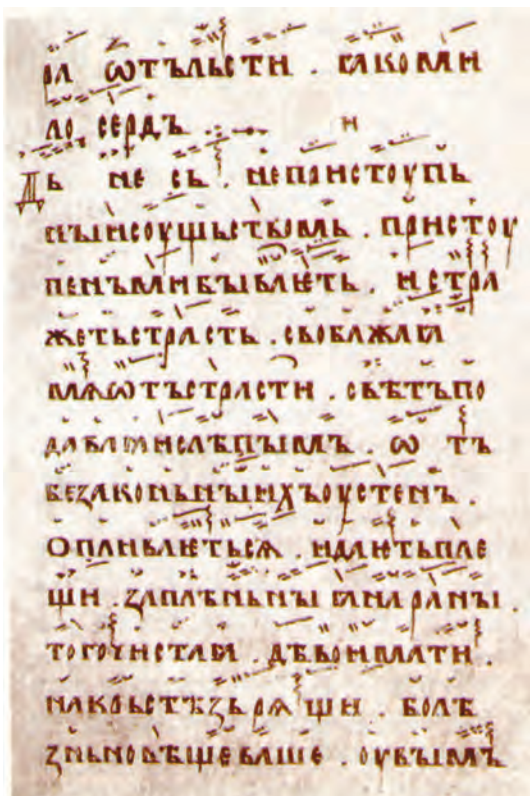 ра ѿтъльсти . ꙗкоми
ло сердъ н
Дь не сь . непристоупь
ныисоущьствомь . пристоу
пенъмибываѥть . истра
жетьстрасть . свобажаꙗ
мѧѡтъстрасти . свѣтъпо
даваꙗислѣпымъ . ѡ тъ
беꙁаконьныихъоустенъ .
оплиеваѥтьсѧ . идаѥтьпле
щи . ꙁаплѣньныꙗнараны .
тогочистаꙗ . дѣвоимати .
накрьстѣꙁьрѧщи . болѣ
ꙁньновѣщеваше . оувымъ